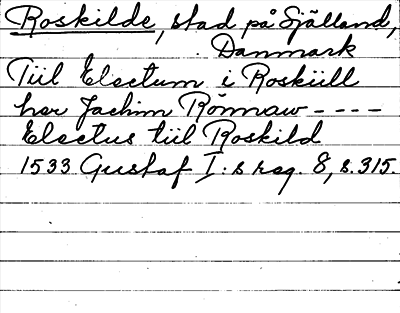 Roskilde, stad på Själland,
Danmark
Tiil Electum i Roskiill
her Jachim Rönnaw - - - -
Electus tiil Roskild
1533 Gustaf I:s reg. 8, s. 315.